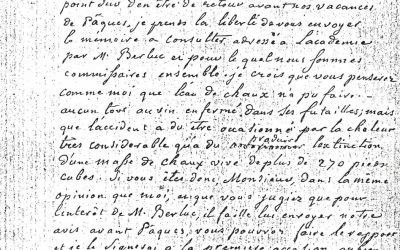 point sûr d'en être de retour avant nos vacances
de Pâques, je prends la liberté de vous envoyer
le memoire a consulter, adressé a l'academie
par M. Berluc et pour le quel nous sommes
commissaires ensemble. je crois que vous penserez
comme moi que l'eau de chaux n'a pu faire
aucun tort au vin enfermé dans ses futailles; mais
que l'accident a du etre occasionné par la chaleur
très considerable qu'a du produire l'extinction
d'une masse de chaux vive de plus de 270 pieds
cubes. Si vous etes donc, Monsieur, dans la même
opinion que moi, et que vous jugiez que pour
l'interêt de M. Berluc, il faille lui envoyer notre
avis avant Pâques, vous pourriez faire le rapport
et je le signerai a la premiere